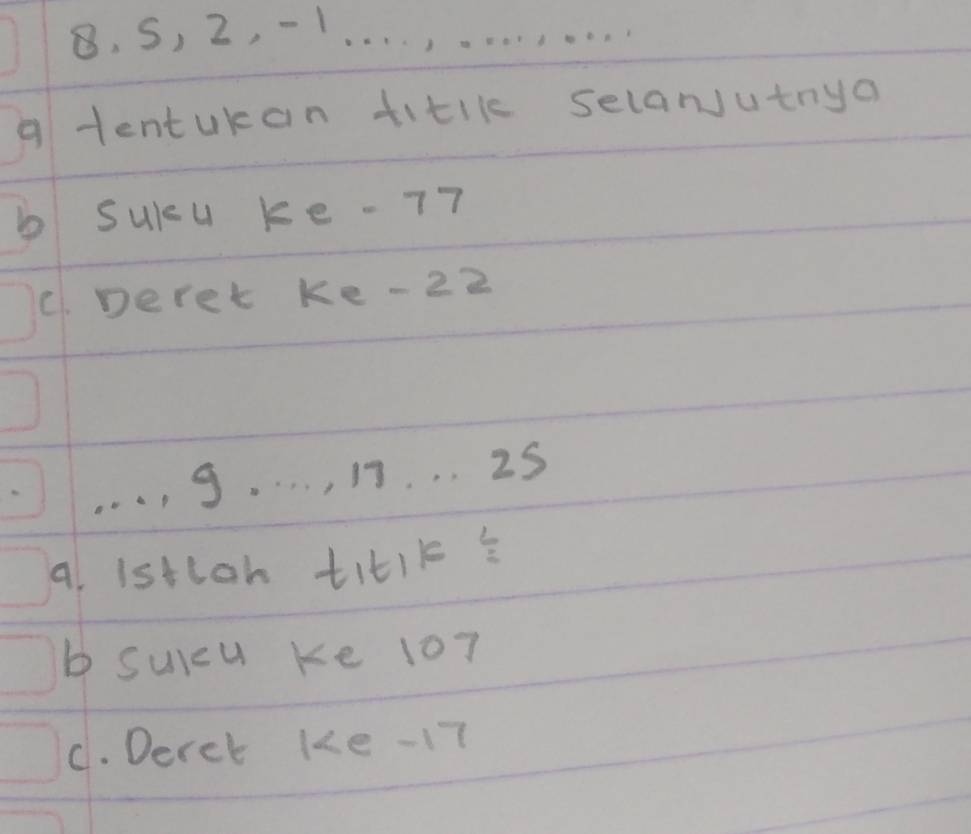 8, 5, 2, -1 ...., ....., .....
a tentukan titik Selanjutnya
b Suku ke - 77
c. Deret Ke - 22
...., 9 ....., 17 .... 25
a. Istlah titik ²
b suku ke 107
c. Deret Ke -17